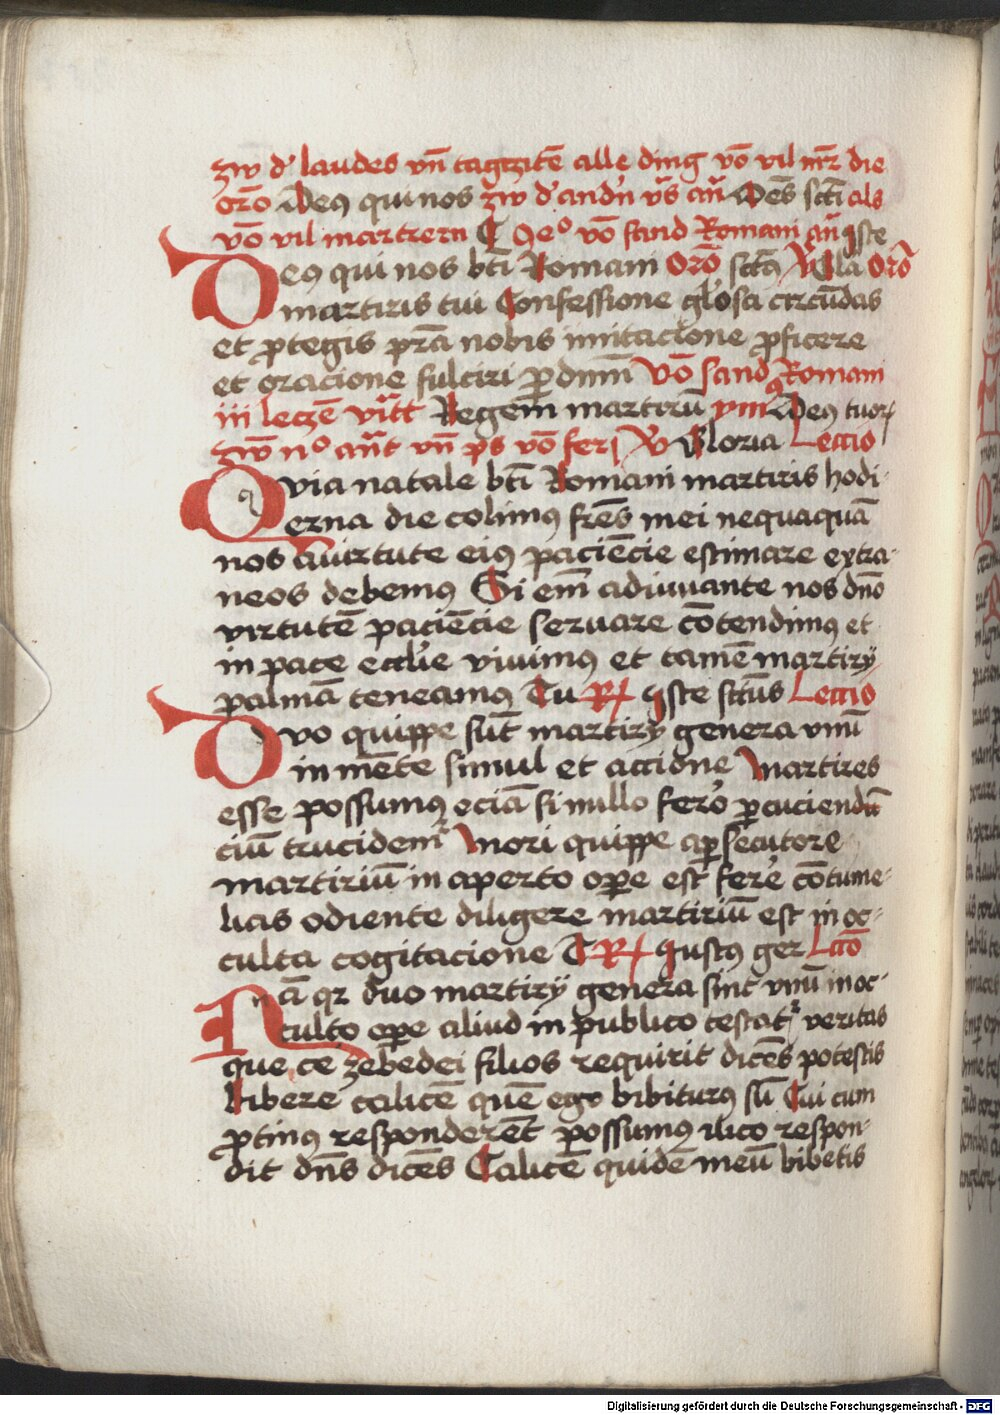 zw d' laudes vn̄ tagzitē alle ding vō vil mr̄z die
orō Deꝯ qui nos zw d' andn̄ vs̄ an̄ Oēs sctī als
vō vil martrern ¶ vō sand Romani an̄ Iste
Deꝯ qui nos btī Romani Orō sctā Ꝟ Orō
martiris tui Confessione glosa circūdas
et ꝓtegis prā nobis imitacione ꝓficere
et oracione fulciri ꝑ dnm̄ Vō sand Romani
iii leczē Regem martirū ym̄ Deꝯ tuoꝝ
zw n° an̄t vn̄ ps vō fer Ꝟ Gloria Lectio
Qvia natale btī Romani martiris hodi-
erna die colimꝯ frēs mei nequaquā
nos a virtute eiꝯ paciēcie estimare extra-
neos debemꝯ Si em̄ adiuuante nos dn̄o
virtutē paciēcie seruare cōtendimꝯ et
in pace ecclīe viuimꝯ et tamē martirÿ
palmā teneamꝯ Tu ℟ Iste sctūs Lectio
Dvo quippe sūt martirÿ genera vnū
in mēte simul et accione Martires
esse possumꝯ eciā si nullo fero ꝑcuciendū
ciū trucidem̄ Mori quippe a ꝑsecutore
martiriū in aperto oꝑe est fere cōtume-
lias odiente diligere martiriū est in oc-
culta cogitacione T ℟ Iustꝯ ger Lcō
Nā qꝛ duo martirÿ genera sint vnū in oc-
culto oꝑe aliud in publico testat᷑ veritas
que ce zebedei filios requirit dicēs potestis
bibere calicē quē ego bibiturꝯ sū Cui cum
ꝓtinꝯ responderēt possumꝯ ilico respon-
dit dn̄s dicēs Calicē quidē meū bibetis
Digitalisierung gefördert durch die Deutsche Forschungsgemeinschaft - DFG